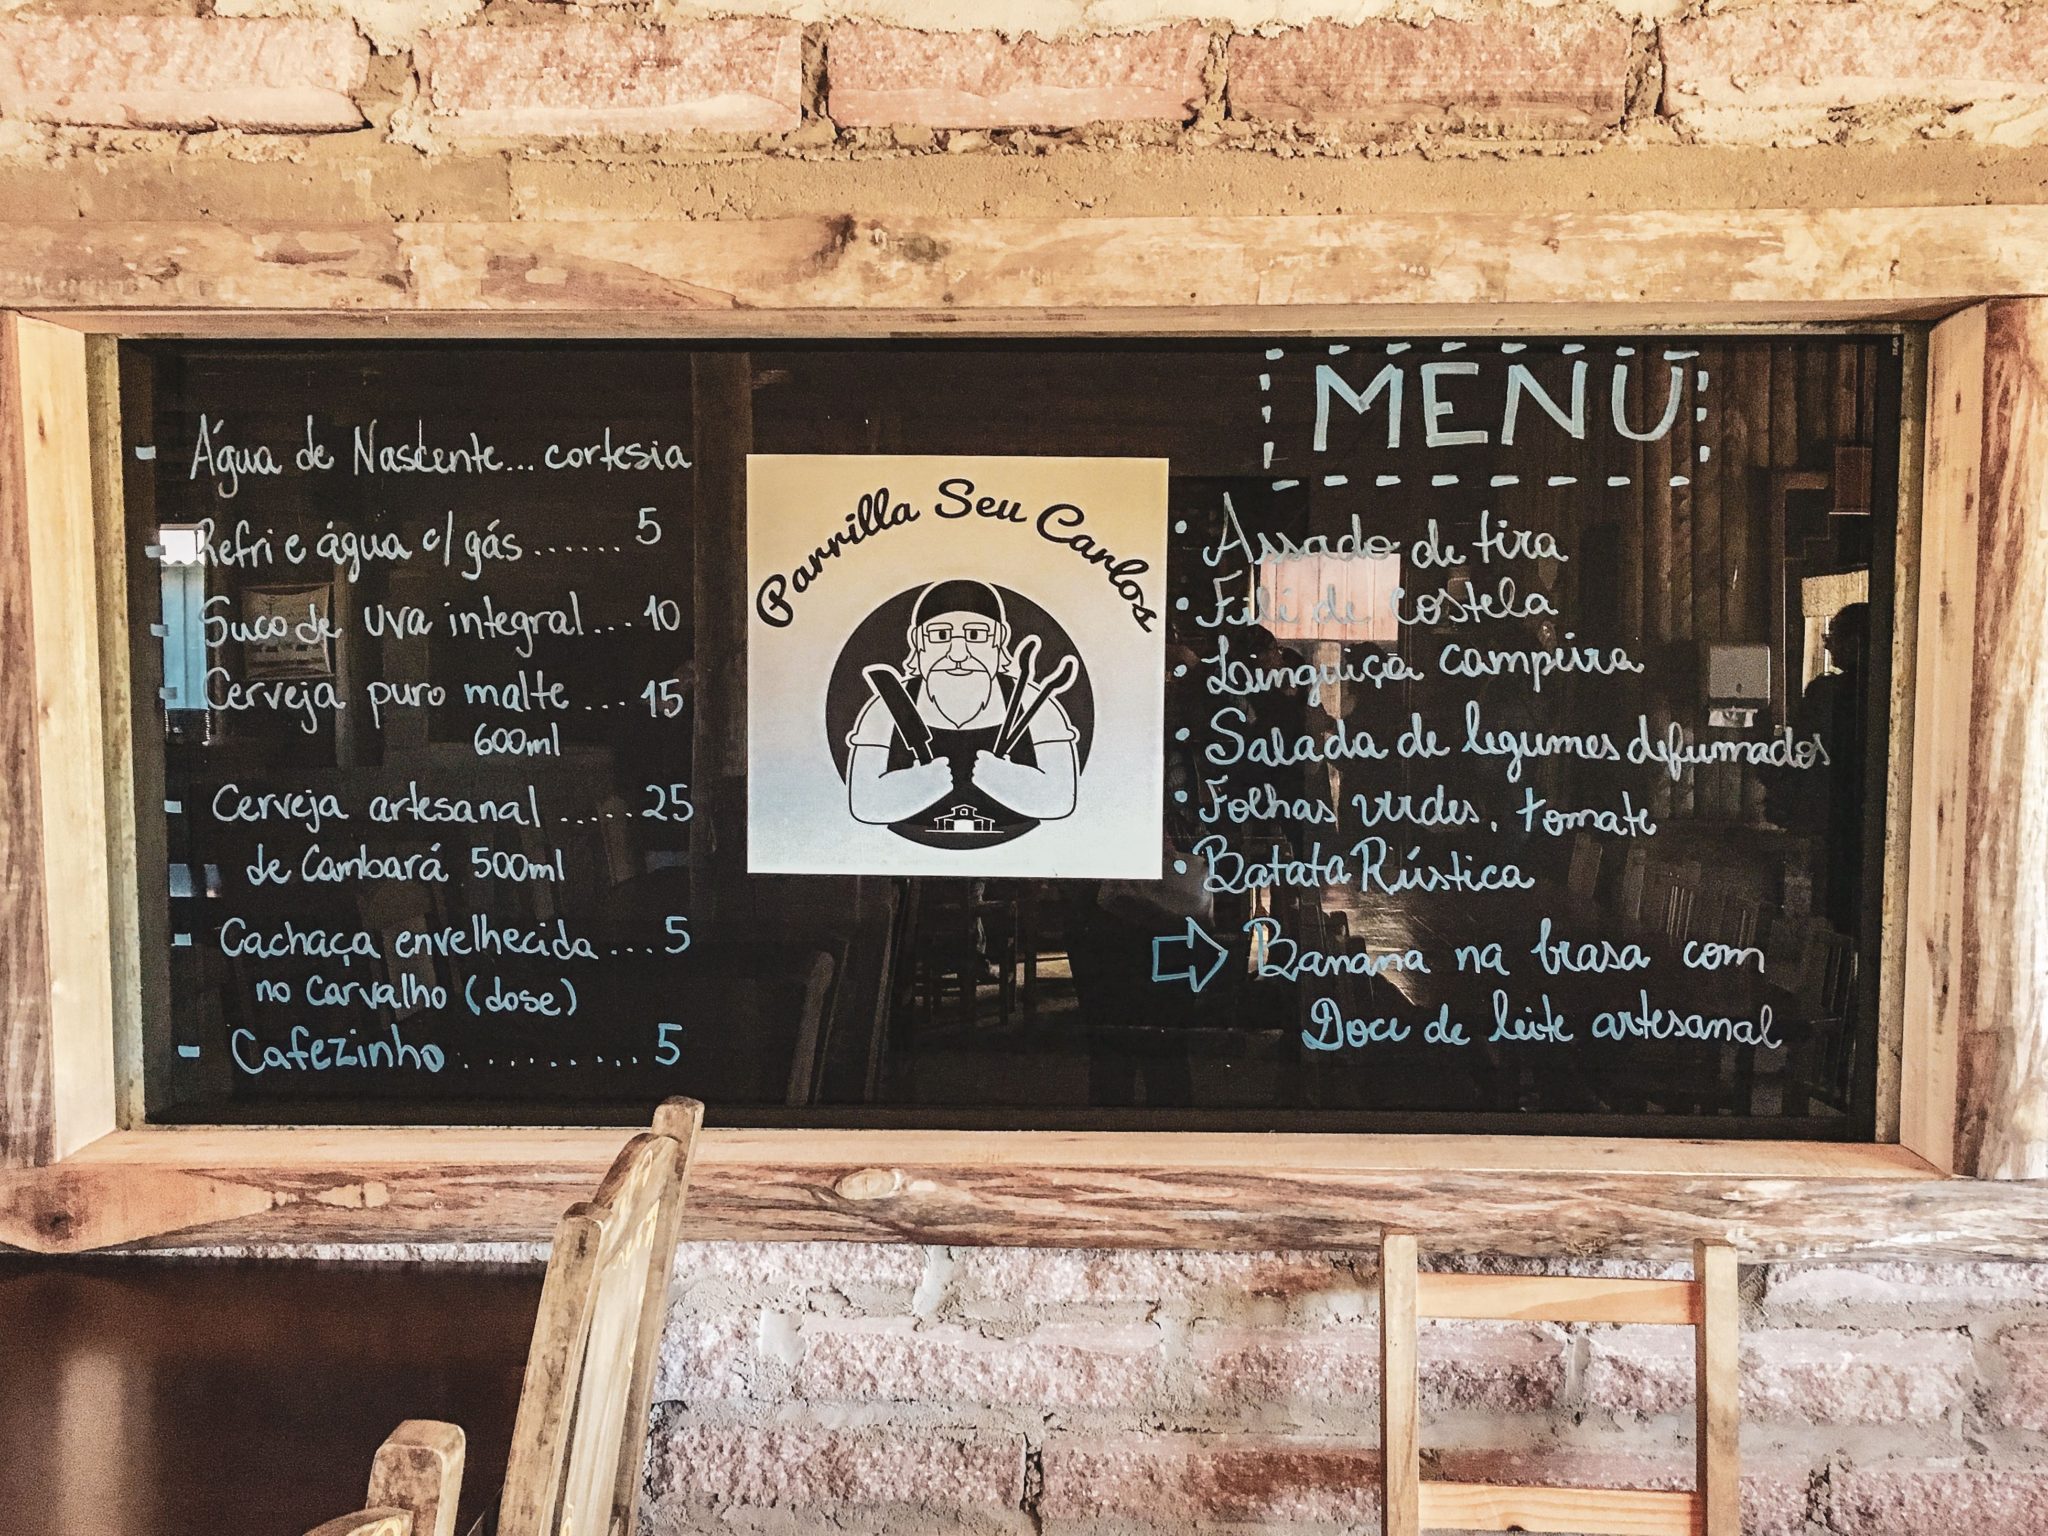 Água de Nascente... cortesia
Refri e água c/ gás ...... 5
Suco de uva integral... 10
Cerveja puro malte ... 15
600ml
Cerveja artesanal ..... 25
de Cambará 500ml
Cachaça envelhecida... 5
no Carvalho (dose)
Cafezinho .......... 5
Parrilla Seu Carlos
MENU
Assado de tira
Filé de costela
Linguiça campeira
Salada de legumes defumados
Folhas verdes, tomate
Batata Rústica
Banana na brasa com
Doce de leite artesanal